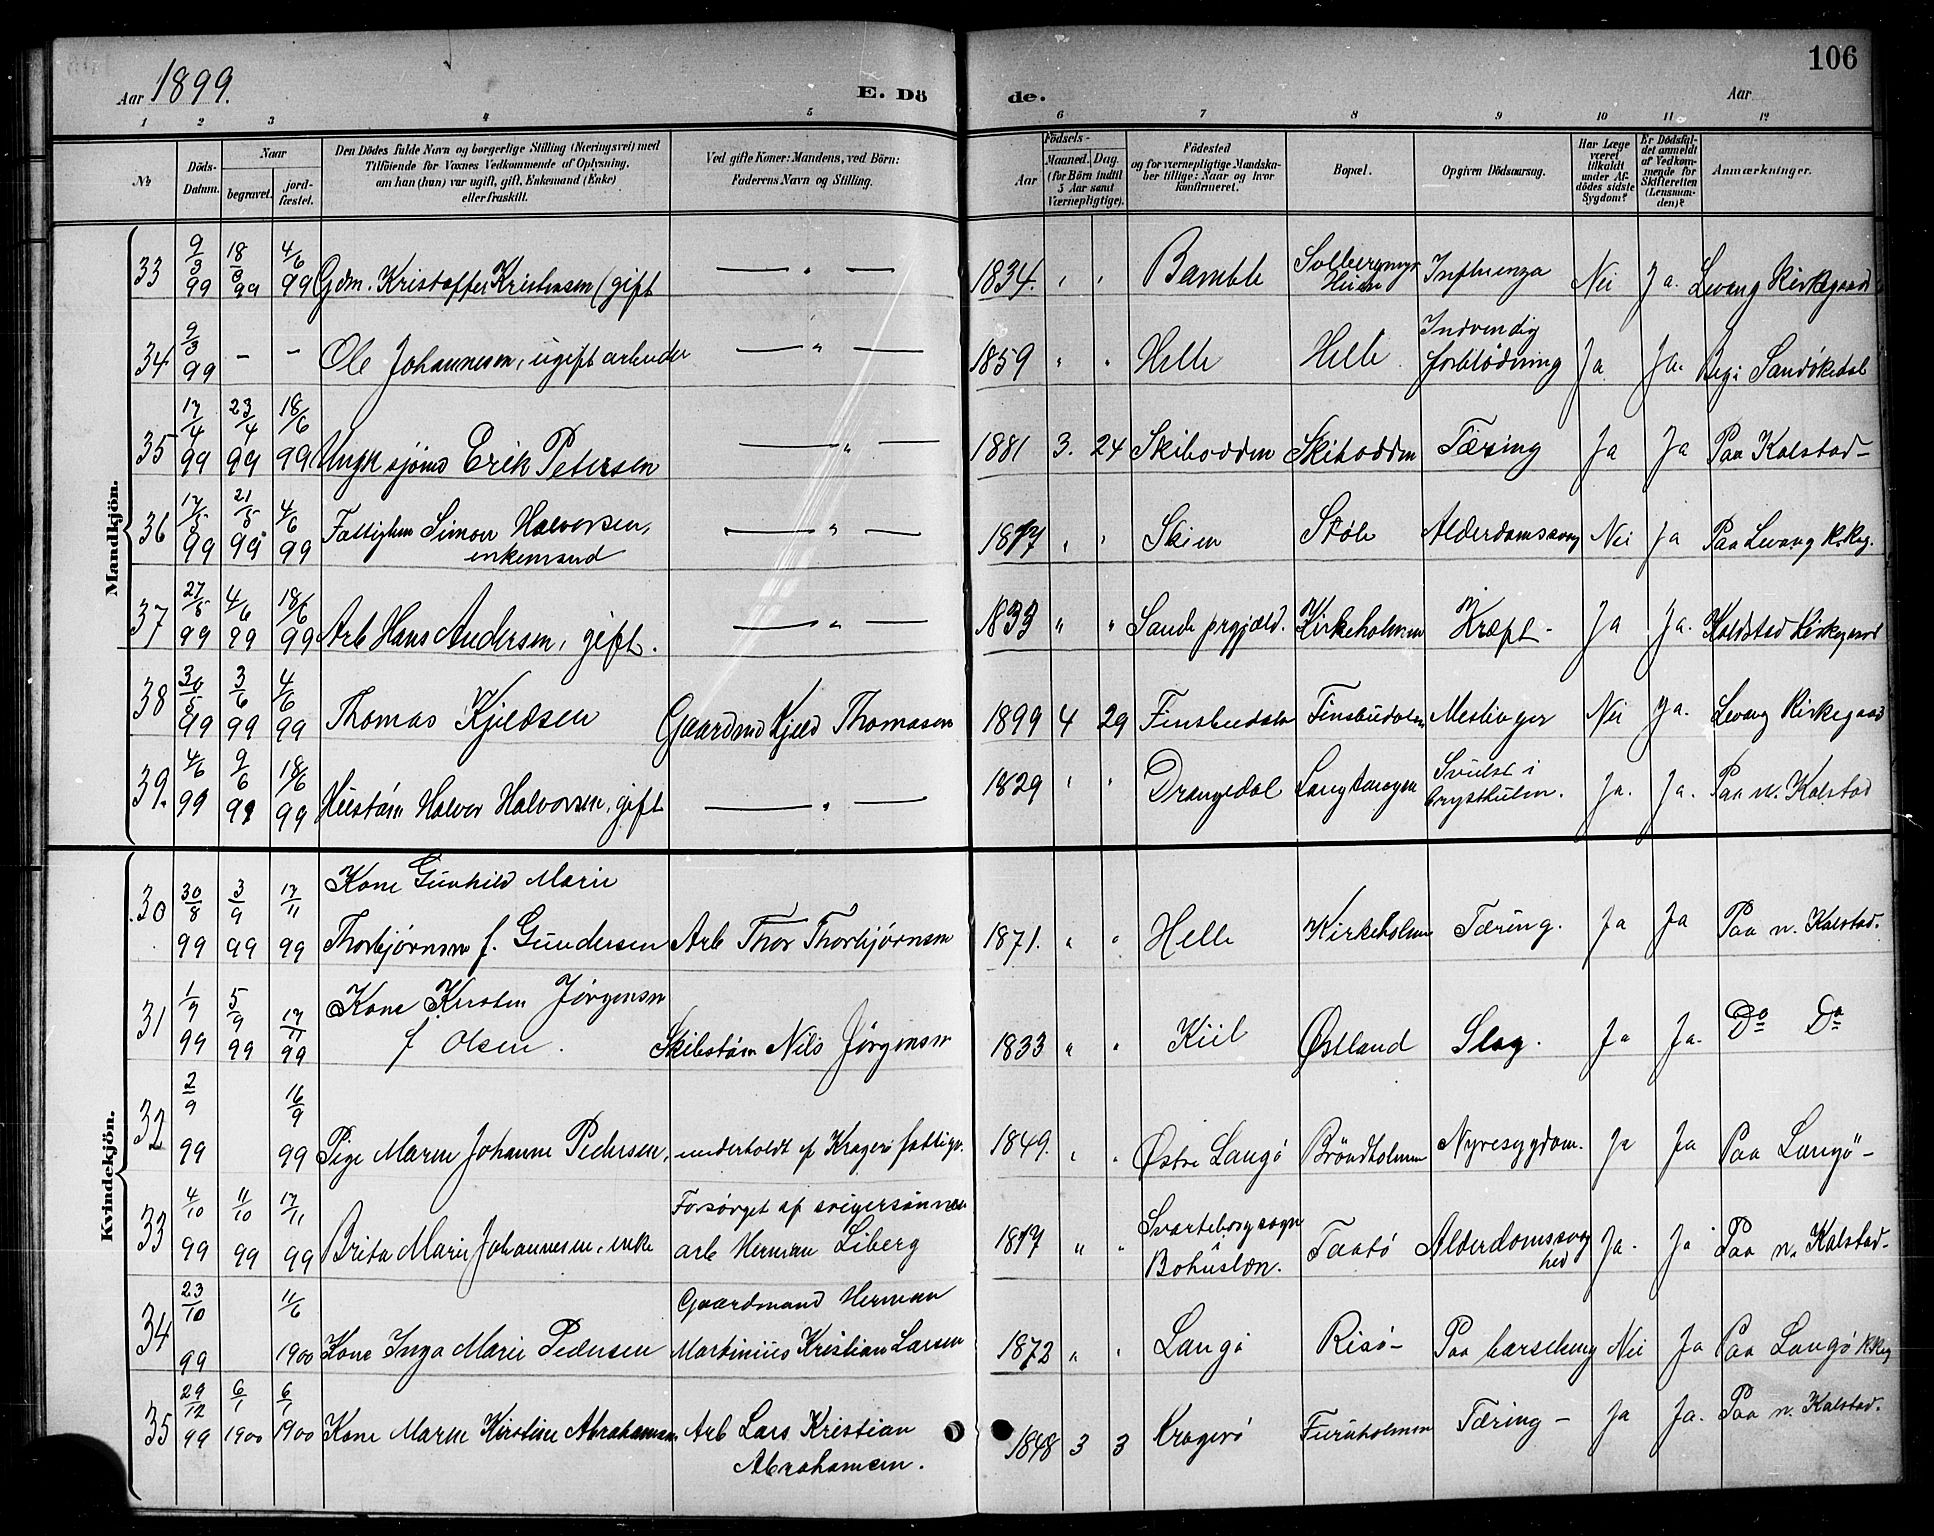 Aar 1899.
E. Dö
de.
106
Aar
1 2 3 4 5 6 7 8 9 10 11 12
No
Döds-Datum.
Naar
begravet.
jord-fæstet.
Den Dödes fulde Navn og borgerlige Stilling (Næringsvei) med
Tilföiende for Voxnes Vedkommende af Oplysning,
om han (hun) var ugift, gift, Enkemand (Enke)
eller fraskilt.
Ved gifte Koner: Mandens, ved Börn:
Faderens Navn og Stilling.
Födsels-
Aar
Maaned. Dag.
(for Börn indtil
5 Aar samt
Værnepligtige).
Födested
og for værnepligtige Mandska-
ber tillige: Naar og hvor
konfirmeret.
Bopæl.
Opgiven Dödsaarsag.
Har Læge
været
tilkaldt
under Af-
dödes sidste
Sygdom?
Er Dödsfal-
det anmeldt
af Vedkom-
mende for
Skifteretten
(Lensman-
den)?
Anmærkninger.
Mandkjön.
33 9/3 99 18/3 99 4/6 99 Gdm. Kristoffer Kristensen (gift — " — 1834. " " Bamble Influenza Nei Ja. Levang Kirkegaard
34. 9/3 99 - - Ole Johannesen, ugift arbeider — " — 1859 " " Helle Helle Indvendig forblödning Ja Ja. Beg i Sandökedal
35 17/4 99 23/4 99 18/6 99 Ungk sjömd Erik Petersen — " — 1881 3. 24 Skibodden Skibodden Tæring Ja Ja Paa Kalstad-
36 17/5 99 21/5 99 4/6 99 Fattiglem Simon Halvorsen, enkemand — " — 1817 " " Skien Stöle Alderdomssvag Nei Ja Paa Levang K.keg.
37 27/5 99 4/6 99 18/6 99 Arb Hans Andersen, gift. — " — 1833 " " Sande prgjæld. Kirkeholmen Kræft - Ja Ja. Kalstad Kirkegaard
38 30/5 99 3/6 99 4/6 99 Thomas Kjeldsen Gaardmd Kjeld Thomasen 1899 4 29 Finsbudalen Finsbudalen Meslinger Nei Ja. Levang Kirkegaard
39. 4/6 99 9/6 99 18/6 99 Husetöm Halvor Halvorsen, gift — " — 1829 " " Drangedal Langtangen Svulst i brysthulen. Ja. Ja. Paa n. Kalstad
Kvindekjön.
30 30/8 99 3/9 99 17/11 99 Kone Gunhild Marie Thorbjörnsen f. Gundersen Arb Thor Thorbjörnsen 1871. " " Helle Kirkeholmen Tæring. Ja Ja Paa n. Kalstad.
31 1/9 99 5/9 99 17/11 99 Kone Kirsten Jörgensen f Olsen. Skibstöm Nils Jörgensen 1833 " " Kiil Östland Slag. Ja Ja. Do Do
32 2/9 99 16/9 99 Pige Maren Johanne Pedersen, underholdt af Kragerö fattigv. 1849. " " Östre Langö Bröndholmen Nyresygdom. Ja Ja Paa Langö-
33 4/10 99 11/10 99 17/11 99 Brita Marie Johannesen, enke Forsörget af svigersönnen arb Herman Liberg 1817 " " Svarteborg sogn Bohuslen. Taatö Alderdomssvaghed Ja. Ja Paa n. Kalstad-
34 23/10 99 11/6 1900 Kone Inga Marie Pedersen Gaardmand Herman Martinius Kristian Larsen 1872 " " Langö Risö- Paa barselseng Nei Ja Paa Langö K.Keg
35 29/12 99 6/1 1900 6/1 1900 Kone Maren Kirstine Abrahamsen Arb Lars Kristian Abrahamsen. 1848 3 3 Kragerö Furuholmen Tæring - Ja Ja. Paa n. Kalstad.